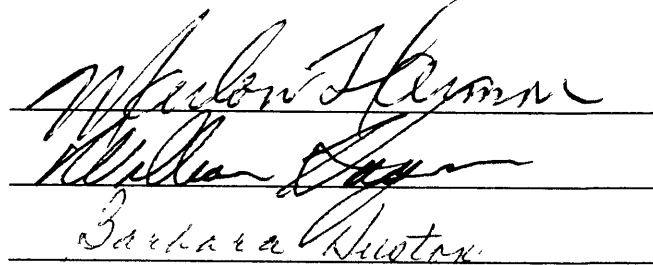 Marlon Harmon
William
Barbara Huston